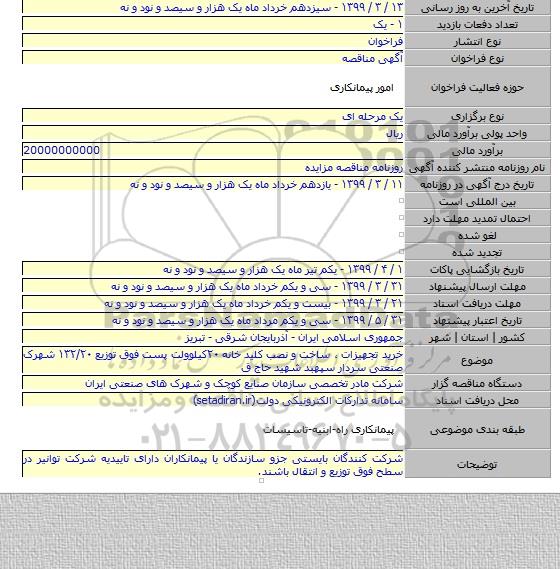 تاریخ آخرین به روز رسانی ۱۳ / ۳ / ۱۳۹۹ - سیزدهم خرداد ماه یک هزار و سیصد و نود و نه
تعداد دفعات بازدید ۱ - یک
نوع انتشار فراخوان
نوع فراخوان آگهی مناقصه
حوزه فعالیت فراخوان امور پیمانکاری
نوع برگزاری یک مرحله ای
واحد پولی برآورد مالی ریال
برآورد مالی 20000000000
نام روزنامه منتشر کننده آگهی روزنامه مناقصه مزایده
تاریخ درج آگهی در روزنامه ۱۱ / ۳ / ۱۳۹۹ - یازدهم خرداد ماه یک هزار و سیصد و نود و نه
بین المللی است
احتمال تمدید مهلت دارد
لغو شده
تجدید شده
تاریخ بازگشایی پاکات ۱ / ۴ / ۱۳۹۹ - یکم تیر ماه یک هزار و سیصد و نود و نه
مهلت ارسال پیشنهاد ۳۱ / ۳ / ۱۳۹۹ - سی و یکم خرداد ماه یک هزار و سیصد و نود و نه
مهلت دریافت اسناد ۲۱ / ۳ / ۱۳۹۹ - بیست و یکم خرداد ماه یک هزار و سیصد و نود و نه
تاریخ اعتبار پیشنهاد ۳۱ / ۵ / ۱۳۹۹ - سی و یکم مرداد ماه یک هزار و سیصد و نود و نه
کشور | استان | شهر جمهوری اسلامی ایران - آذربایجان شرقی - تبریز
موضوع خرید تجهیزات ، ساخت و نصب کلید خانه ۲۰کیلوولت پست فوق توزیع ۱۳۲/۲۰ شهرک
صنعتی سردار سپهبد شهید حاج ق
دستگاه مناقصه گزار شرکت مادر تخصصی سازمان صنایع کوچک و شهرک های صنعتی ایران
محل دریافت اسناد سامانه تدارکات الکترونیکی دولت(setadiran.ir)
طبقه بندی موضوعی پیمانکاری راه-ابنیه-تاسیسات
توضیحات شرکت کنندگان بایستی جزو سازندگان یا پیمانکاران دارای تاییدیه شرکت توانیر در
سطح فوق توزیع و انتقال باشند.
۰۲۱-۸۸۳۴۹۶۷۰-۵